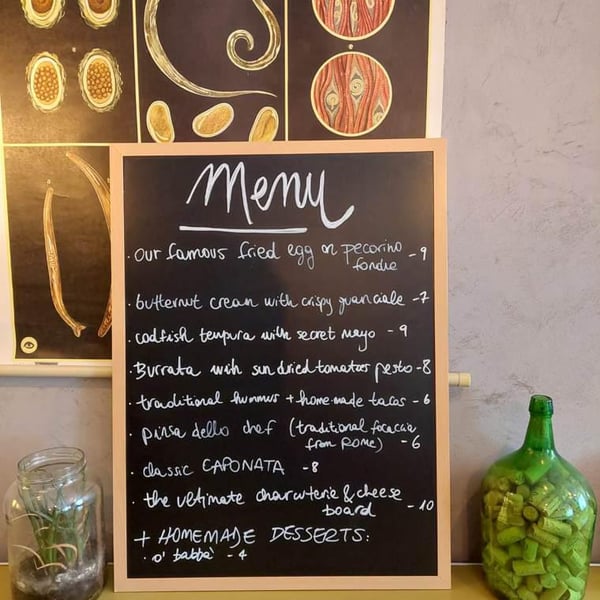 Menu
· our famous fried egg on pecorino - 9
fondue
· butternut cream with crispy guanciale - 7
· codfish tempura with secret mayo - 9
· Burrata with sundried tomatoes pesto - 8
· traditional hummus + home-made tacos - 6
· pinsa dello chef (traditional focaccia
from Rome) - 6
· classic CAPONATA - 8
· the ultimate charcuterie & cheese
board - 10
+ HOMEMADE DESSERTS:
· o' babbà - 4